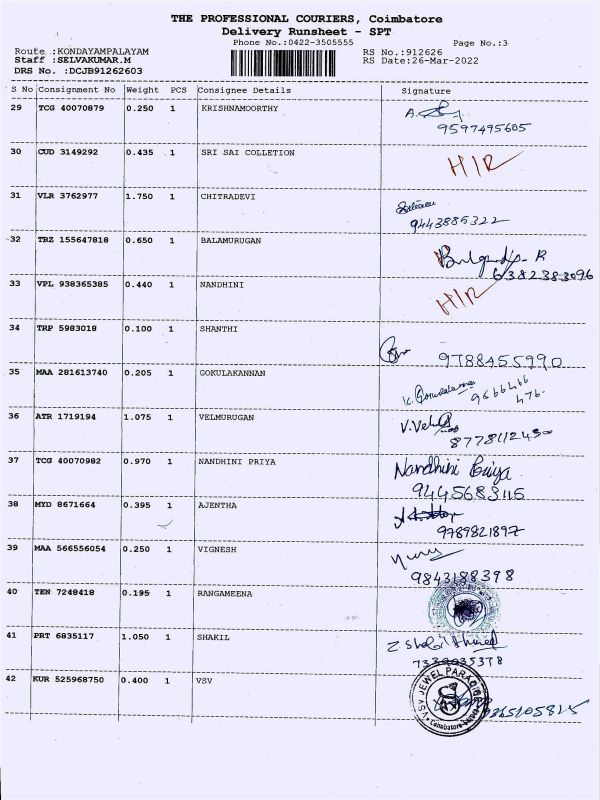 THE PROFESSIONAL COURIERS, Coimbatore
Delivery Runsheet - SPT
Phone No.:0422-3505555 Page No.:3
Route :KONDAYAMPALAYAM RS No.:912626
Staff :SELVAKUMAR.M RS Date:26-Mar-2022
DRS No. :DCJB91262603
S No Consignment No Weight PCS Consignee Details Signature
29 TCG 40070879 0.250 1 KRISHNAMOORTHY
9597495605
30 CUD 3149292 0.435 1 SRI SAI COLLETION H/R
31 VLR 3762977 1.750 1 CHITRADEVI
9443885322
32 TRZ 155647818 0.650 1 BALAMURUGAN
6382383096
33 VPL 938365385 0.440 1 NANDHINI H/R
34 TRP 5983018 0.100 1 SHANTHI
9788455990
35 MAA 281613740 0.205 1 GOKULAKANNAN
9666466
476.
36 ATR 1719194 1.075 1 VELMURUGAN
37 TCG 40070982 0.970 1 NANDHINI PRIYA Nandhini Priya
9445683115
38 MYD 8671664 0.395 1 AJENTHA
9789821897
39 MAA 566556054 0.250 1 VIGNESH
9843188398
40 TEN 7248418 0.195 1 RANGAMEENA
41 PRT 6835117 1.050 1 SHAKIL
42 KUR 525968750 0.400 1 VSV
VSV JEWEL PARADISE